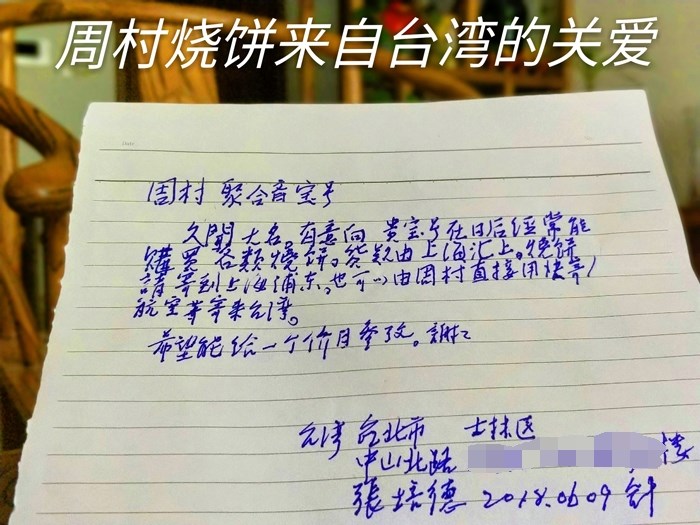 周村烧饼来自台湾的关爱
周村 聚合斋宝号
久聞大名,有意向 贵宝号在日后经常能
購買各类燒饼,货款由上海汇上。烧饼
請寄到上海浦东,也可以由周村直接用快寄/
航空等寄来台湾。
希望能给一个价目参考。謝々
台湾 台北市 士林区
中山北路
張培德 2018.06.09